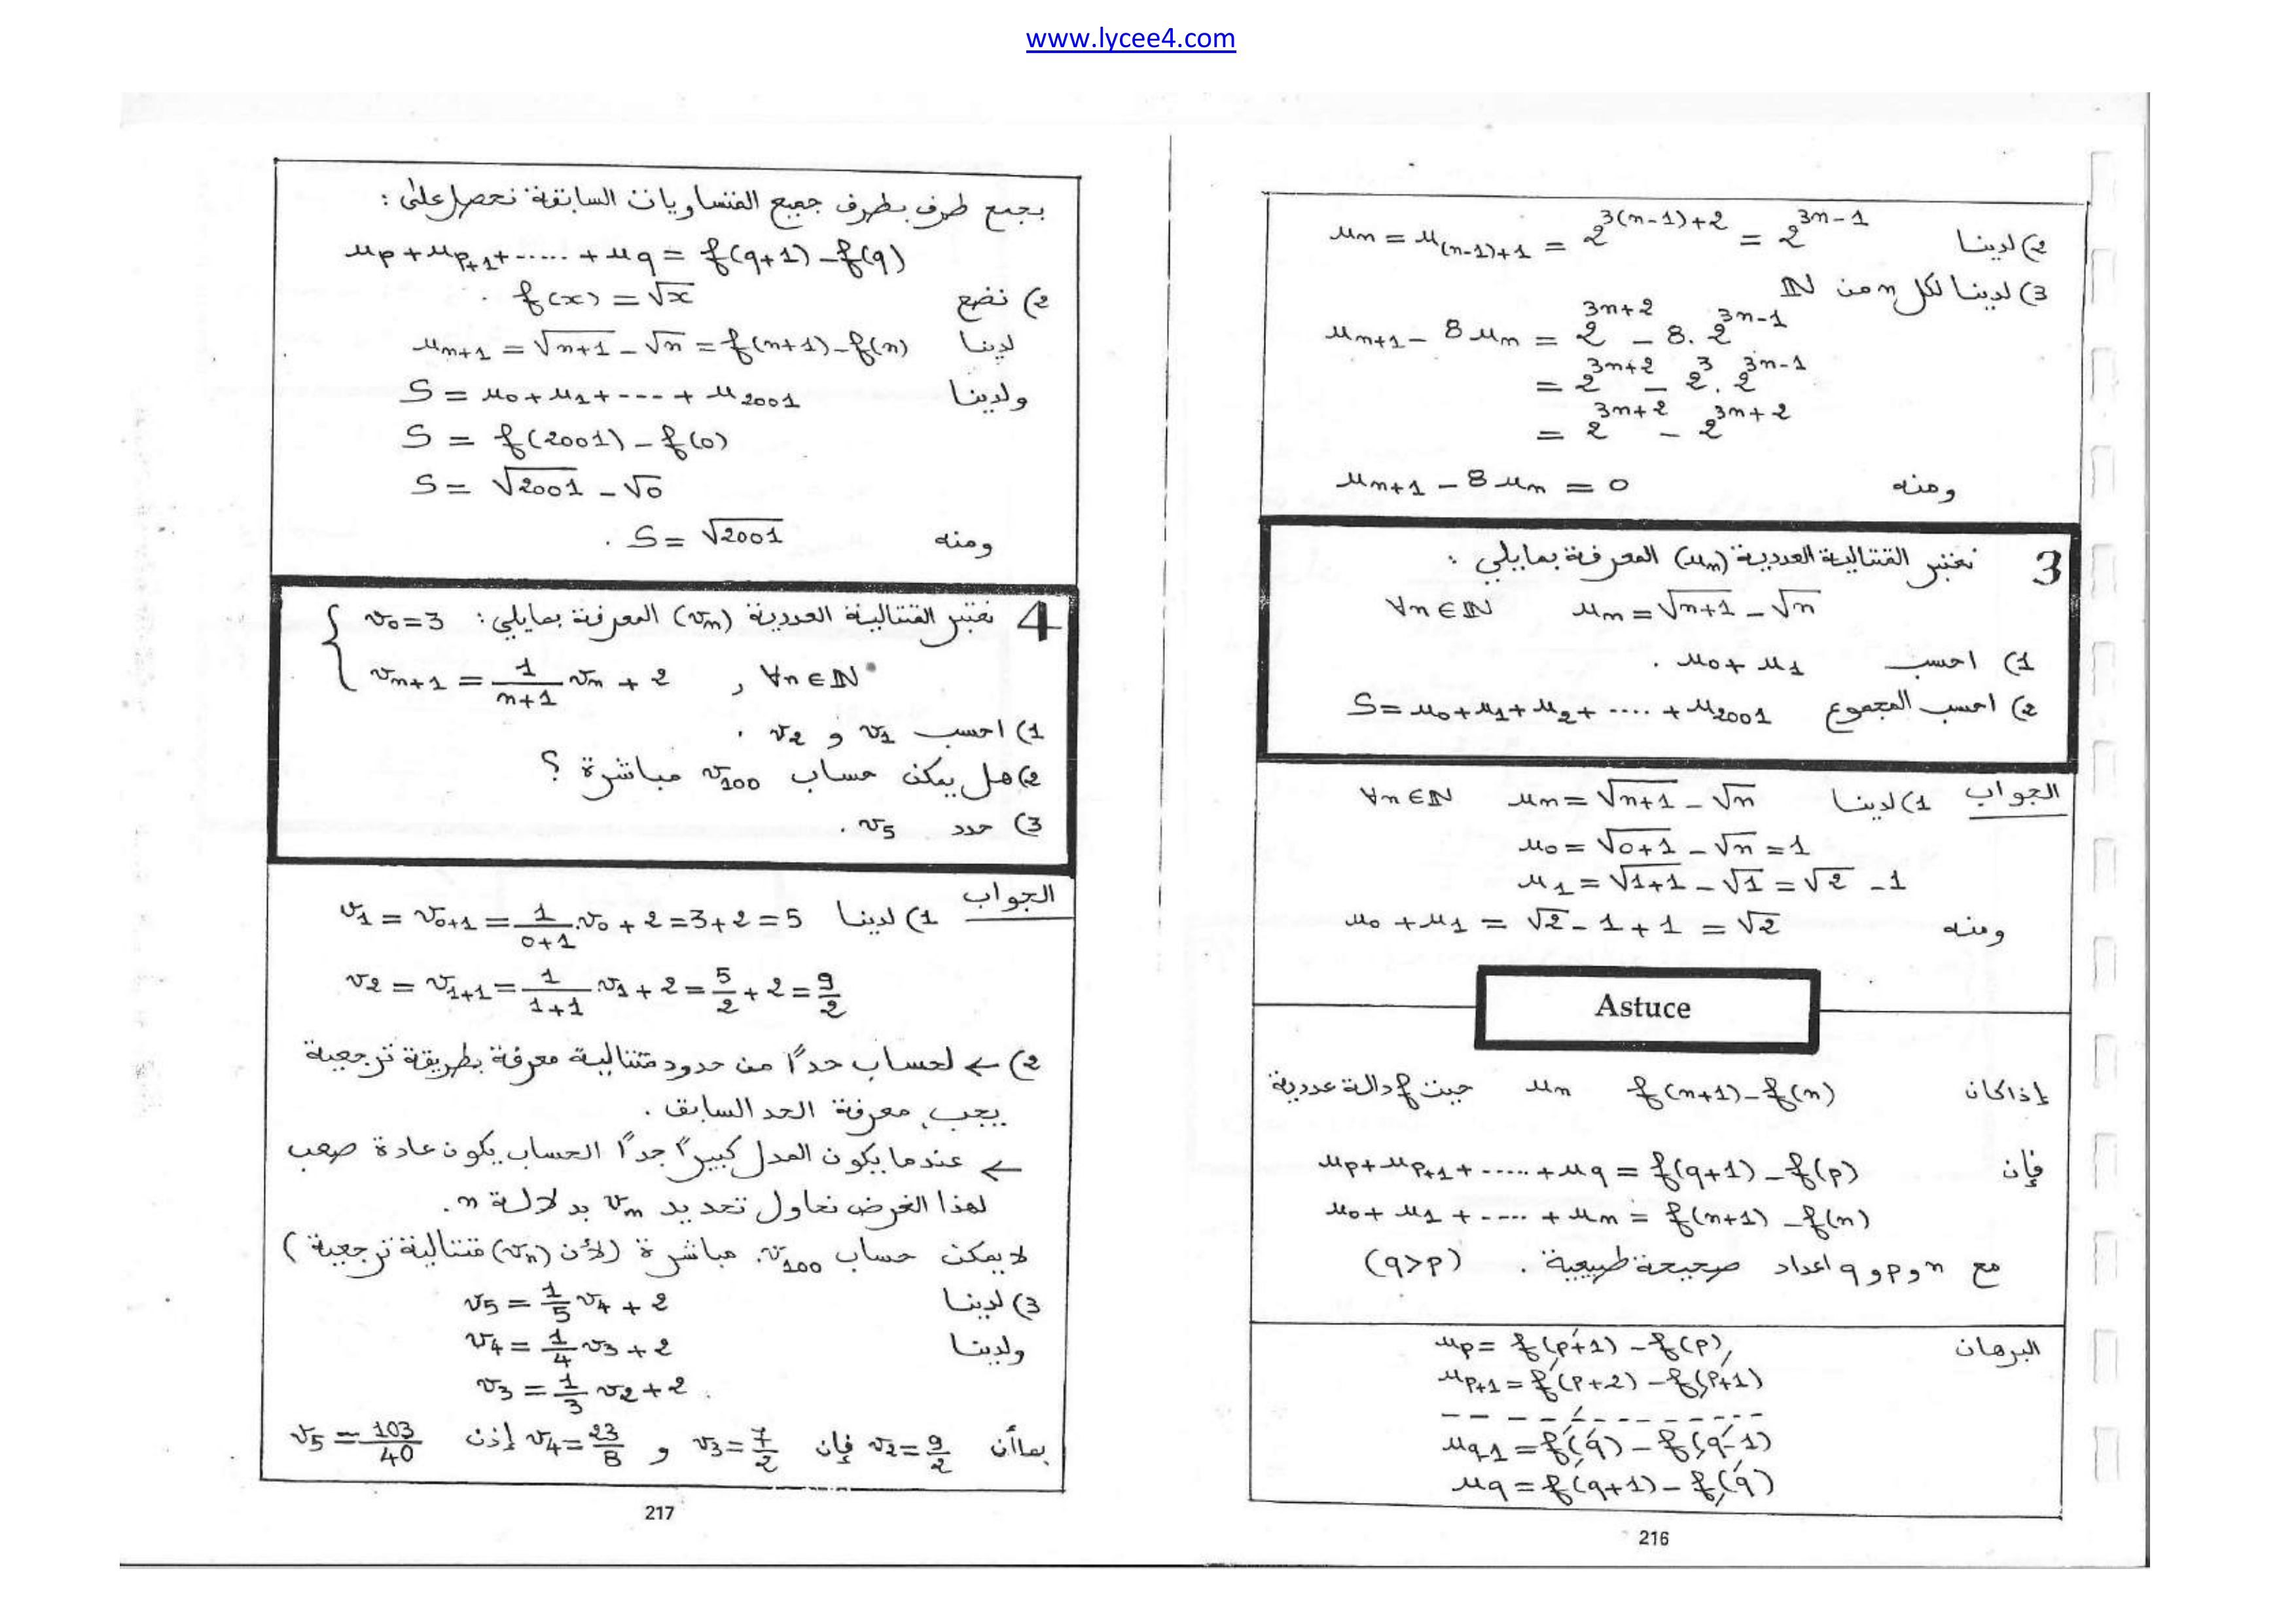 www.lycee4.com
2) لدينا u_n = u_{(n-1)+1} = 2^{3(n-1)+2} = 2^{3n-1}
3) لدينا لكل n من ℕ
u_{n+1} - 8u_n = 2^{3n+2} - 8.2^{3n-1}
= 2^{3n+2} - 2^3.2^{3n-1}
= 2^{3n+2} - 2^{3n+2}
ومنه u_{n+1} - 8u_n = 0
3 نعتبر المتتالية العددية (u_n) المعرفة بمايلي :
∀n∈ℕ u_n = √(n+1) - √n
1) احسب u_0 + u_1 .
2) احسب المجموع S = u_0 + u_1 + u_2 + .... + u_2001
الجواب 1) لدينا u_n = √(n+1) - √n ∀n∈ℕ
u_0 = √(0+1) - √n = 1
u_1 = √(1+1) - √1 = √2 - 1
ومنه u_0 + u_1 = √2 - 1 + 1 = √2
Astuce
إذا كان u_n f(n+1) - f(n) حيث f دالة عددية
فإن u_p + u_{p+1} + ..... + u_q = f(q+1) - f(p)
u_0 + u_1 + ..... + u_n = f(n+1) - f(n)
مع n و p و q اعداد صحيحة طبيعية . (q>p)
البرهان u_p = f(p+1) - f(p)
u_{p+1} = f(p+2) - f(p+1)
- - - - - - - - - - - -
u_{q-1} = f(q) - f(q-1)
u_q = f(q+1) - f(q)
216
بجمع طرف بطرف جميع المتساويات السابقة نحصل على :
u_p + u_{p+1} + ..... + u_q = f(q+1) - f(q)
2) نضع f(x) = √x .
لدينا u_{n+1} = √(n+1) - √n = f(n+1) - f(n)
ولدينا S = u_0 + u_1 + --- + u_2001
S = f(2001) - f(0)
S = √2001 - √0
ومنه S = √2001 .
4 نعتبر المتتالية العددية (v_n) المعرفة بمايلي : { v_0 = 3
v_{n+1} = 1/(n+1) v_n + 2 , ∀n∈ℕ*
1) احسب v_1 و v_2 .
2) هل يمكن حساب v_100 مباشرة ؟
3) حدد v_5 .
الجواب 1) لدينا v_1 = v_{0+1} = 1/(0+1) . v_0 + 2 = 3 + 2 = 5
v_2 = v_{1+1} = 1/(1+1) . v_1 + 2 = 5/2 + 2 = 9/2
2) ← لحساب حدًا من حدود متتالية معرفة بطريقة ترجعية
يجب معرفة الحد السابق .
← عندما يكون المدل كبيرًا جدًا الحساب يكون عادة صعب
لهذا الغرض نحاول تحديد v_n بدلالة n .
لا يمكن حساب v_100 مباشرة (لأن (v_n) متتالية ترجعية )
3) لدينا v_5 = 1/5 v_4 + 2
ولدينا v_4 = 1/4 v_3 + 2
v_3 = 1/3 v_2 + 2 .
بما أن v_2 = 9/2 فإن v_3 = 7/2 و v_4 = 23/8 إذن v_5 = 103/40
217